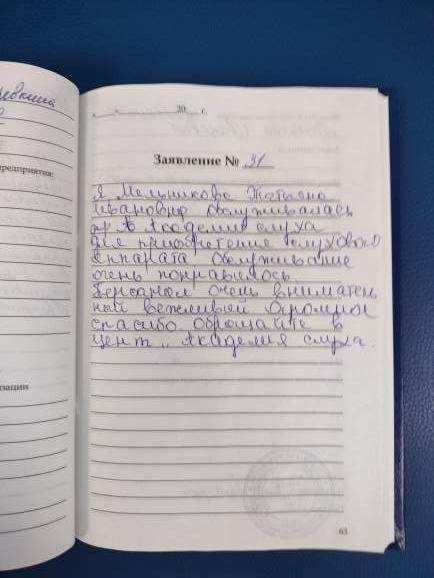 редприятия:
изации
20 г.
Заявление № 31
Я Мельникова Татьяна
Ивановна обслуживалась
Академии слуха
Для приобретение слухового
аппарата обслуживание
очень понравилось
Персонал очень вниматель
ный вежливый. Огромное
спасибо. Оброщайте в
Цент „ Академия слуха.
63